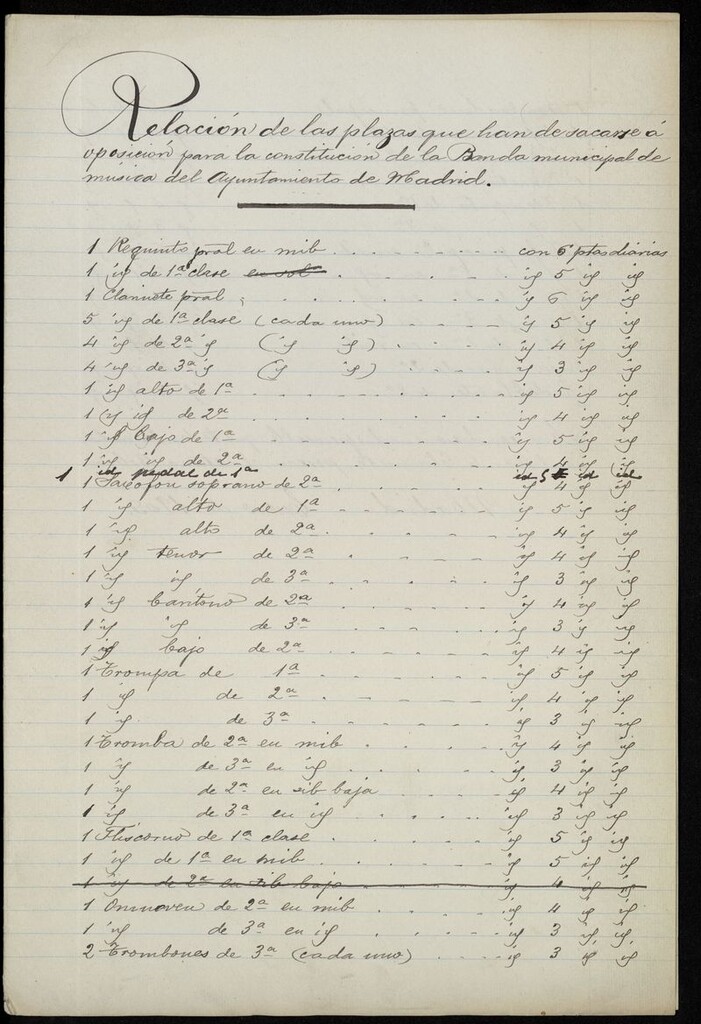 Relación de las plazas que han de sacarse á
oposición para la constitución de la Banda municipal de
música del Ayuntamiento de Madrid.
1 Requinto pral en mib . . . . . . . con 6 ptas diarias
1 id de 1ª clase en sol . . . . . id 5 id id
1 Clarinete pral . . . . . . . id 6 id id
5 id de 1ª clase (cada uno) . . . . id 5 id id
4 id de 2ª id (id id) . . . . id 4 id id
4 id de 3ª id (id id) . . . . id 3 id id
1 id alto de 1ª . . . . . . . id 5 id id
1 id id de 2ª . . . . . . . id 4 id id
1 id Bajo de 1ª . . . . . . . id 5 id id
1 id id de 2ª . . . . . . . id 4 id id
1 id pedal de 1ª id 5 id id
1 Saxofon soprano de 2ª . . . . . id 4 id id
1 id alto de 1ª . . . . . id 5 id id
1 id alto de 2ª . . . . . id 4 id id
1 id tenor de 2ª . . . . . id 4 id id
1 id id de 3ª . . . . . id 3 id id
1 id barítono de 2ª . . . . . id 4 id id
1 id id de 3ª . . . . . id 3 id id
1 id bajo de 2ª . . . . . id 4 id id
1 Trompa de 1ª . . . . . id 5 id id
1 id de 2ª . . . . . id 4 id id
1 id de 3ª . . . . . id 3 id id
1 Tromba de 2ª en mib . . . . id 4 id id
1 id de 3ª en id . . . . id 3 id id
1 id de 2ª en sib baja . . . . id 4 id id
1 id de 3ª en id . . . . id 3 id id
1 Fliscorno de 1ª clase . . . . id 5 id id
1 id de 1ª en mib . . . . id 5 id id
1 id de 2ª en sib bajo . . . . id 4 id id
1 Onnoven de 2ª en mib . . . . id 4 id id
1 id de 3ª en id . . . . id 3 id id
2 Trombones de 3ª (cada uno) . . . . id 3 id id